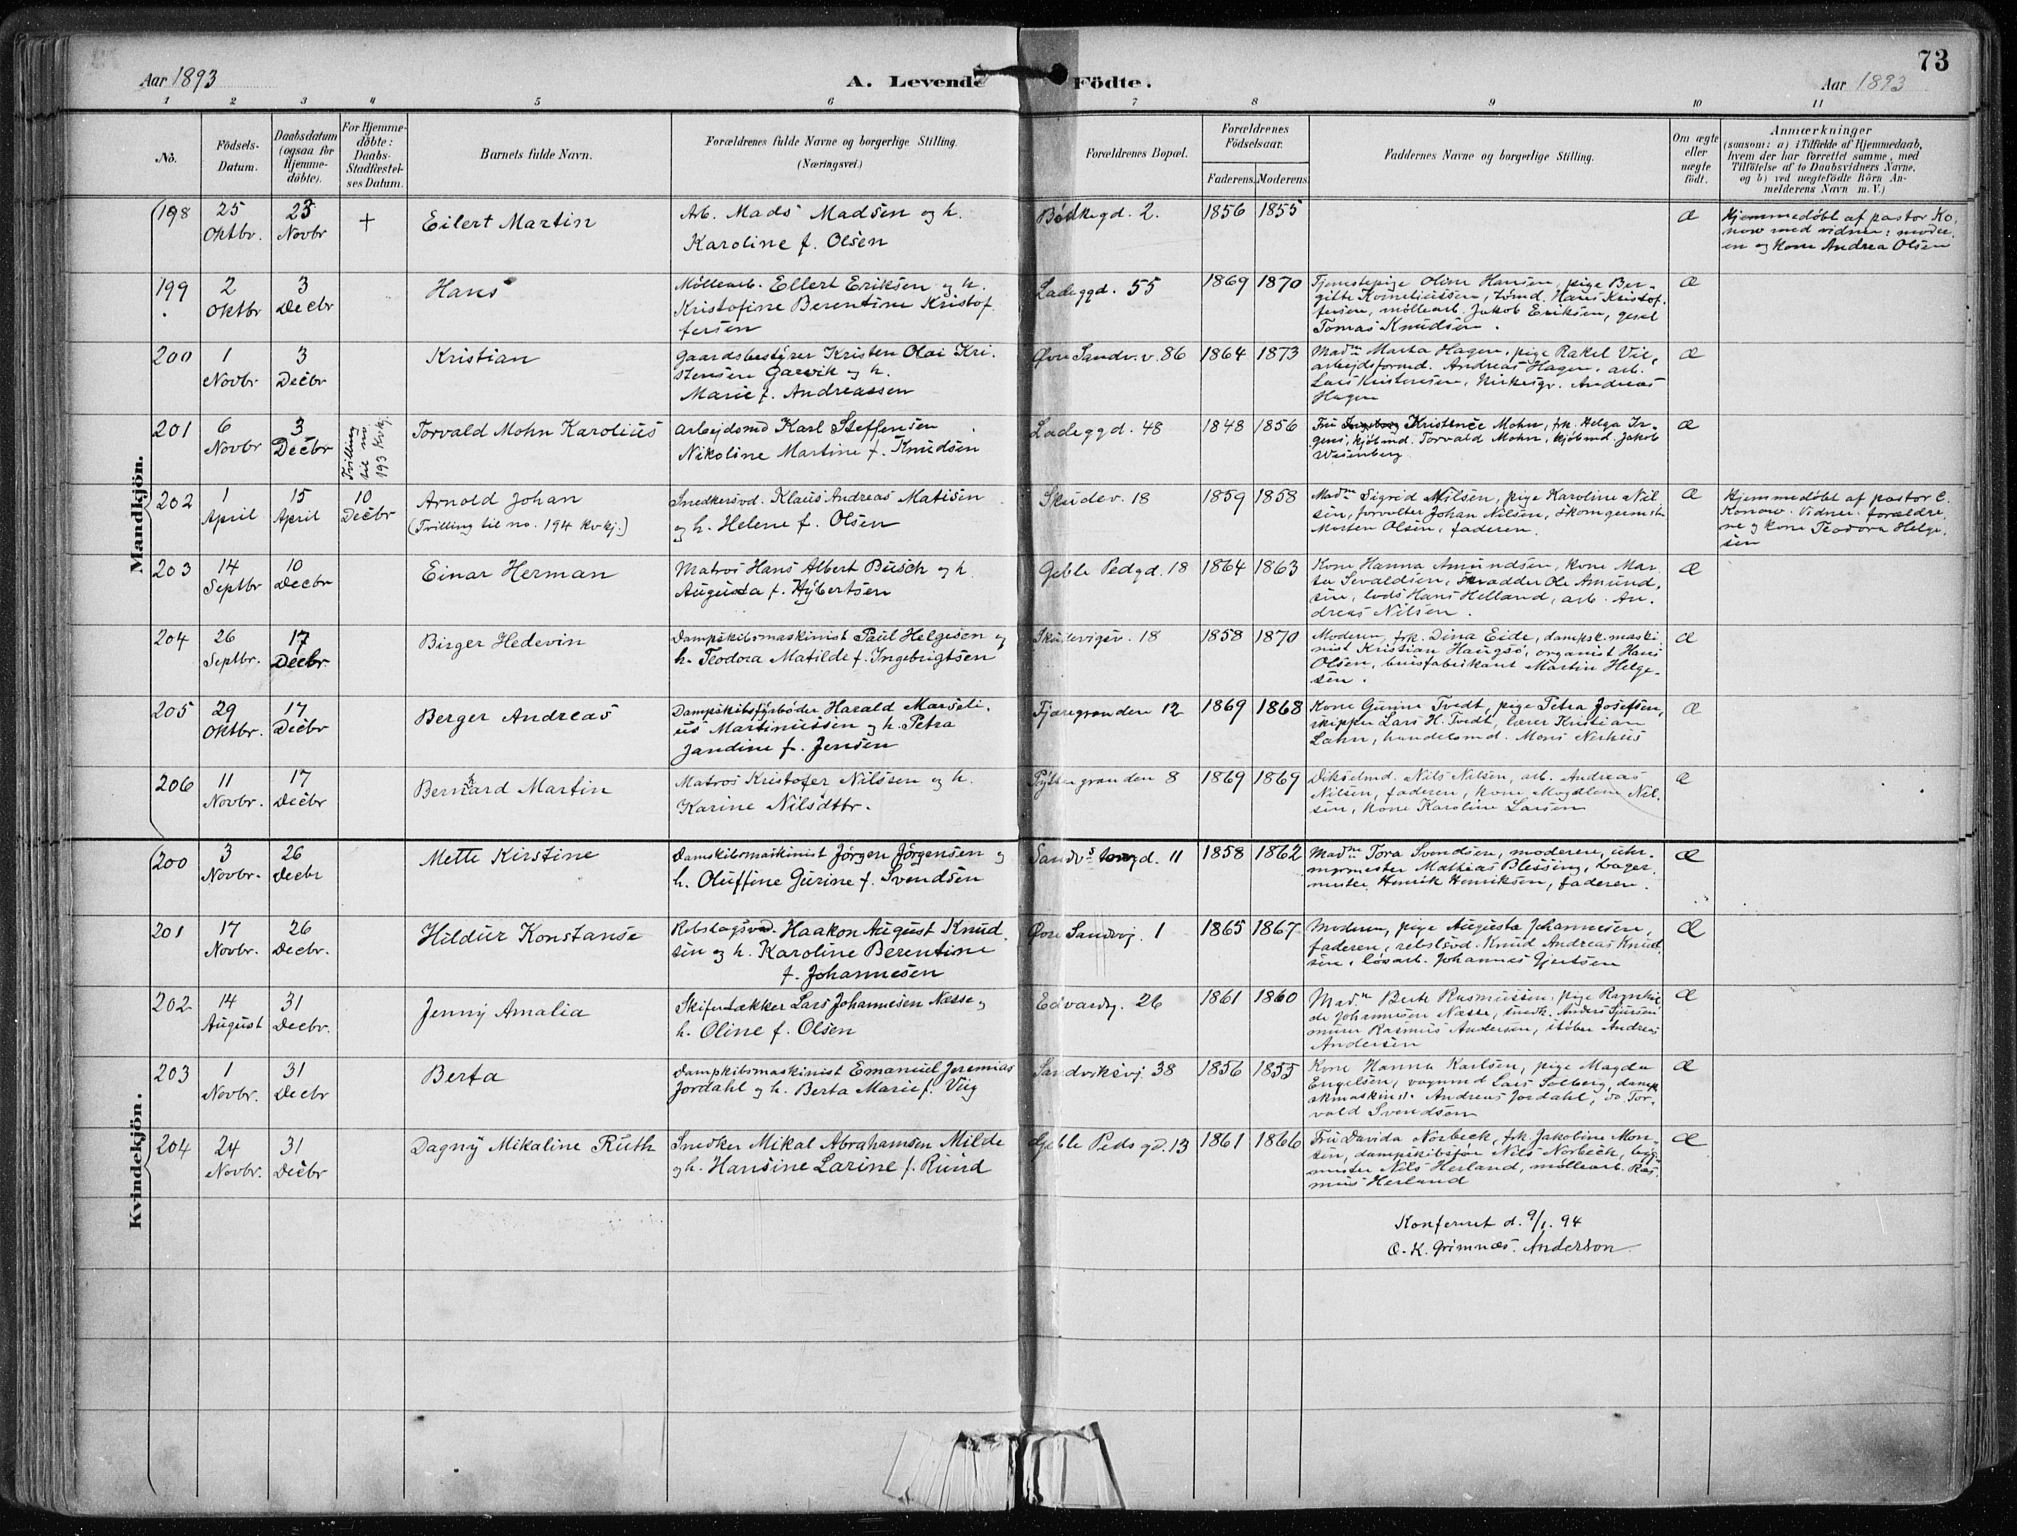 73
Aar 1893
A. Levende Födte.
Aar 1893
1 2 3 4 5 6 7 8 9 10 11
No.
Födsels-
Datum.
Daabsdatum
(ogsaa for
Hjemme-
döbte).
For Hjemme-
döbte:
Daabs-
Stadfæstel-
ses Datum.
Barnets fulde Navn.
Forældrenes fulde Navne og borgerlige Stilling.
(Næringsvei.)
Forældrenes Bopæl.
Forældrenes
Födselsaar.
Faderens. Moderens.
Faddernes Navne og borgerlige Stilling.
Om ægte
eller
uægte
födt.
Anmærkninger
(saasom: a) i Tilfælde af Hjemmedaab,
hvem der har forrettet samme, med
Tilföielse af to Daabsvidners Navne,
og b) ved uægtefödte Börn An-
melderens Navn m. V.)
Mandkjön.
198
25
Oktbr.
23
Novbr
+
Eilert Martin
Arb. Mads Madsen og h.
Karoline f. Olsen
Bødkergd. 2.
1856 1855
Æ
Hjemmedøbt af pastor Ko-
now med vidner: moder-
en og kone Andrea Olsen
199
2
Oktbr
3
Decbr
Hans
Møllearb. Ellert Eriksen og h.
Kristofine Berentine Kristof
fersen
Ladeggd. 55
1869 1870
Tjenestepige Oline Hansen, pige Ber-
gitte Korneliussen, tømd. Hans Kristof-
fersen, møllearb. Jakob Eriksen, gesel
Tomas Knudsen.
Æ
200
1
Novbr
3
Decbr
Kristian
Gaardsbestyrer Kristen Olai Kri-
stensen Garvik og h.
Marie f. Andreassen
Øvre Sandv.v. 86
1864 1873
Madm Marta Hagen, pige Rakel Vil,
arbejdsformd. Andreas Hagen, arb.
Lars Kristensen, Kirkesgr. Andreas
Hagen
Æ
201
6
Novbr
3
Decbr
Tvilling
til no
193 Kvkj.
Torvald Mohn Karolius
Arbejdsmd Karl Steffensen
Nikoline Martine f. Knudsen
Ladeggd. 48
1848 1856
Fru Ingeborg Kristence Mohn, frk. Helga Ir-
gens, kjøbmd. Torvald Mohn, kjøbmd. Jakob
Wesenberg
Æ
202
1
April
15
April
10
Decbr
Arnold Johan
(Tvilling til no. 194 Kvkj.)
Snedkersvd. Klaus Andreas Matisen
og h. Helene f. Olsen
Skudev. 18
1859 1858
Madm Sigrid Nilsen, pige Karoline Nil
sen, forvalter Johan Nilsen, skomgermester
Morten Olsen, faderen.
Æ
Hjemmedøbt af pastor C.
Konow. Vidner: forældre-
ne og kone Teodora Helge-
sen
203
14
Septbr
10
Decbr
Einar Herman
Matros Hans Albert Busch og h.
Augusta f. Hybertsen
Geble Pedgd. 18
1864 1863
Kone Hanna Amundsen, kone Mar-
ta Sevaldsen, skrædder Ole Amund-
sen, lods Hans Helland, arb. An-
dreas Nilsen.
Æ
204
26
Septbr.
17
Decbr
Birger Hedevin
Dampskibsmaskinist Paul Helgesen og
h. Teodora Matilde f. Ingebrigtsen
Skudevigsv. 18
1858 1870
Moderen, frk. Dina Eide, dampsk.maski-
nist Kristian Haugsø, organist Hans
Olsen, husfabrikant Martin Helge-
sen.
Æ
205
29
Oktbr.
17
Decbr
Berger Andreas
Dampskibsfyrbøder Harald Marseli-
us Martinussen og h. Petra
Jandine f. Jensen
Fjæregranden 12
1869 1868
Kone Gurine Tvedt, pige Petra Josefsen,
skipper Lars H. Tvedt, lærer Kristian
Lahn, handelsmd. Mons Nerhus
Æ
206
11
Novbr.
17
Decbr
Bernhard Martin
Matros Kristofer Nilssen og h.
Karine Nilsdtbr.
Pyttergranden 8
1869 1869
Dikselmd. Nils Nilsen, arb. Andreas
Nilsen, faderen, kone Magdlene Nil-
sen, kone Karoline Larsen
Æ
Kvindekjön.
200
3
Novbr.
26
Decbr
Mette Kirstine
Damskibsmaskinist Jørgen Jørgensen og
h. Oluffine Gurine f. Svendsen
Sandvs torvgd. 11
1858 1862
Madm Tora Svendsen, moderen, uhr-
magermester Mathias Blessing, bager-
mester Henrik Henriksen, faderen.
Æ
201
17
Novbr.
26
Decbr.
Hildur Konstanse
Rebslagsvd. Haakon August Knud
sen og h. Karoline Berentine
f. Johannesen
Øvre Sandvj. 1
1865 1867
Moderen, pige Augusta Johannesen,
faderen, rebslsvd. Knud Andreas Knud
sen, løsarb. Johannes Gjertsen
Æ
202
14
August
31
Decbr.
Jenny Amalia
Skifertækker Lars Johannesen Næsse og
h. Oline f. Olsen
Edvardsg. 26
1861 1860
Madm Berte Rasmussen, pige Ragnhil
de Johannesen Næsse, snedk. Anders Sjursen
murer Rasmus Andersen, støber Andreas
Andersen
Æ
203
1
Novbr.
31
Decbr
Berta
Dampskibsmaskinist Emanuel Jeremias
Jordahl og h. Berta Marie f. Viig
Sandviksvj. 38
1856 1855
Kone Hanna Karlsen, pige Magda
Engelsen, vognmd Lars Solberg, damp
skmaskinist. Andreas Jordahl, do. Tor-
vald Svendsen
Æ
204
24
Novbr.
31
Decbr
Dagny Mikaline Ruth
Snedker Mikal Abrahamsen Milde
og h. Hansine Larine f. Ruud
Geble Peds gd. 13
1861 1866
Fru Davida Norbeck, frk Jakobine Mon-
sen, dampskibsfør Nils Norbeck, byg-
mester Nils Herland, møllearb. Ras-
mus Herland
Æ
Konfereret d. 9/1. 94
O. K. Grimnæs. Anderson.